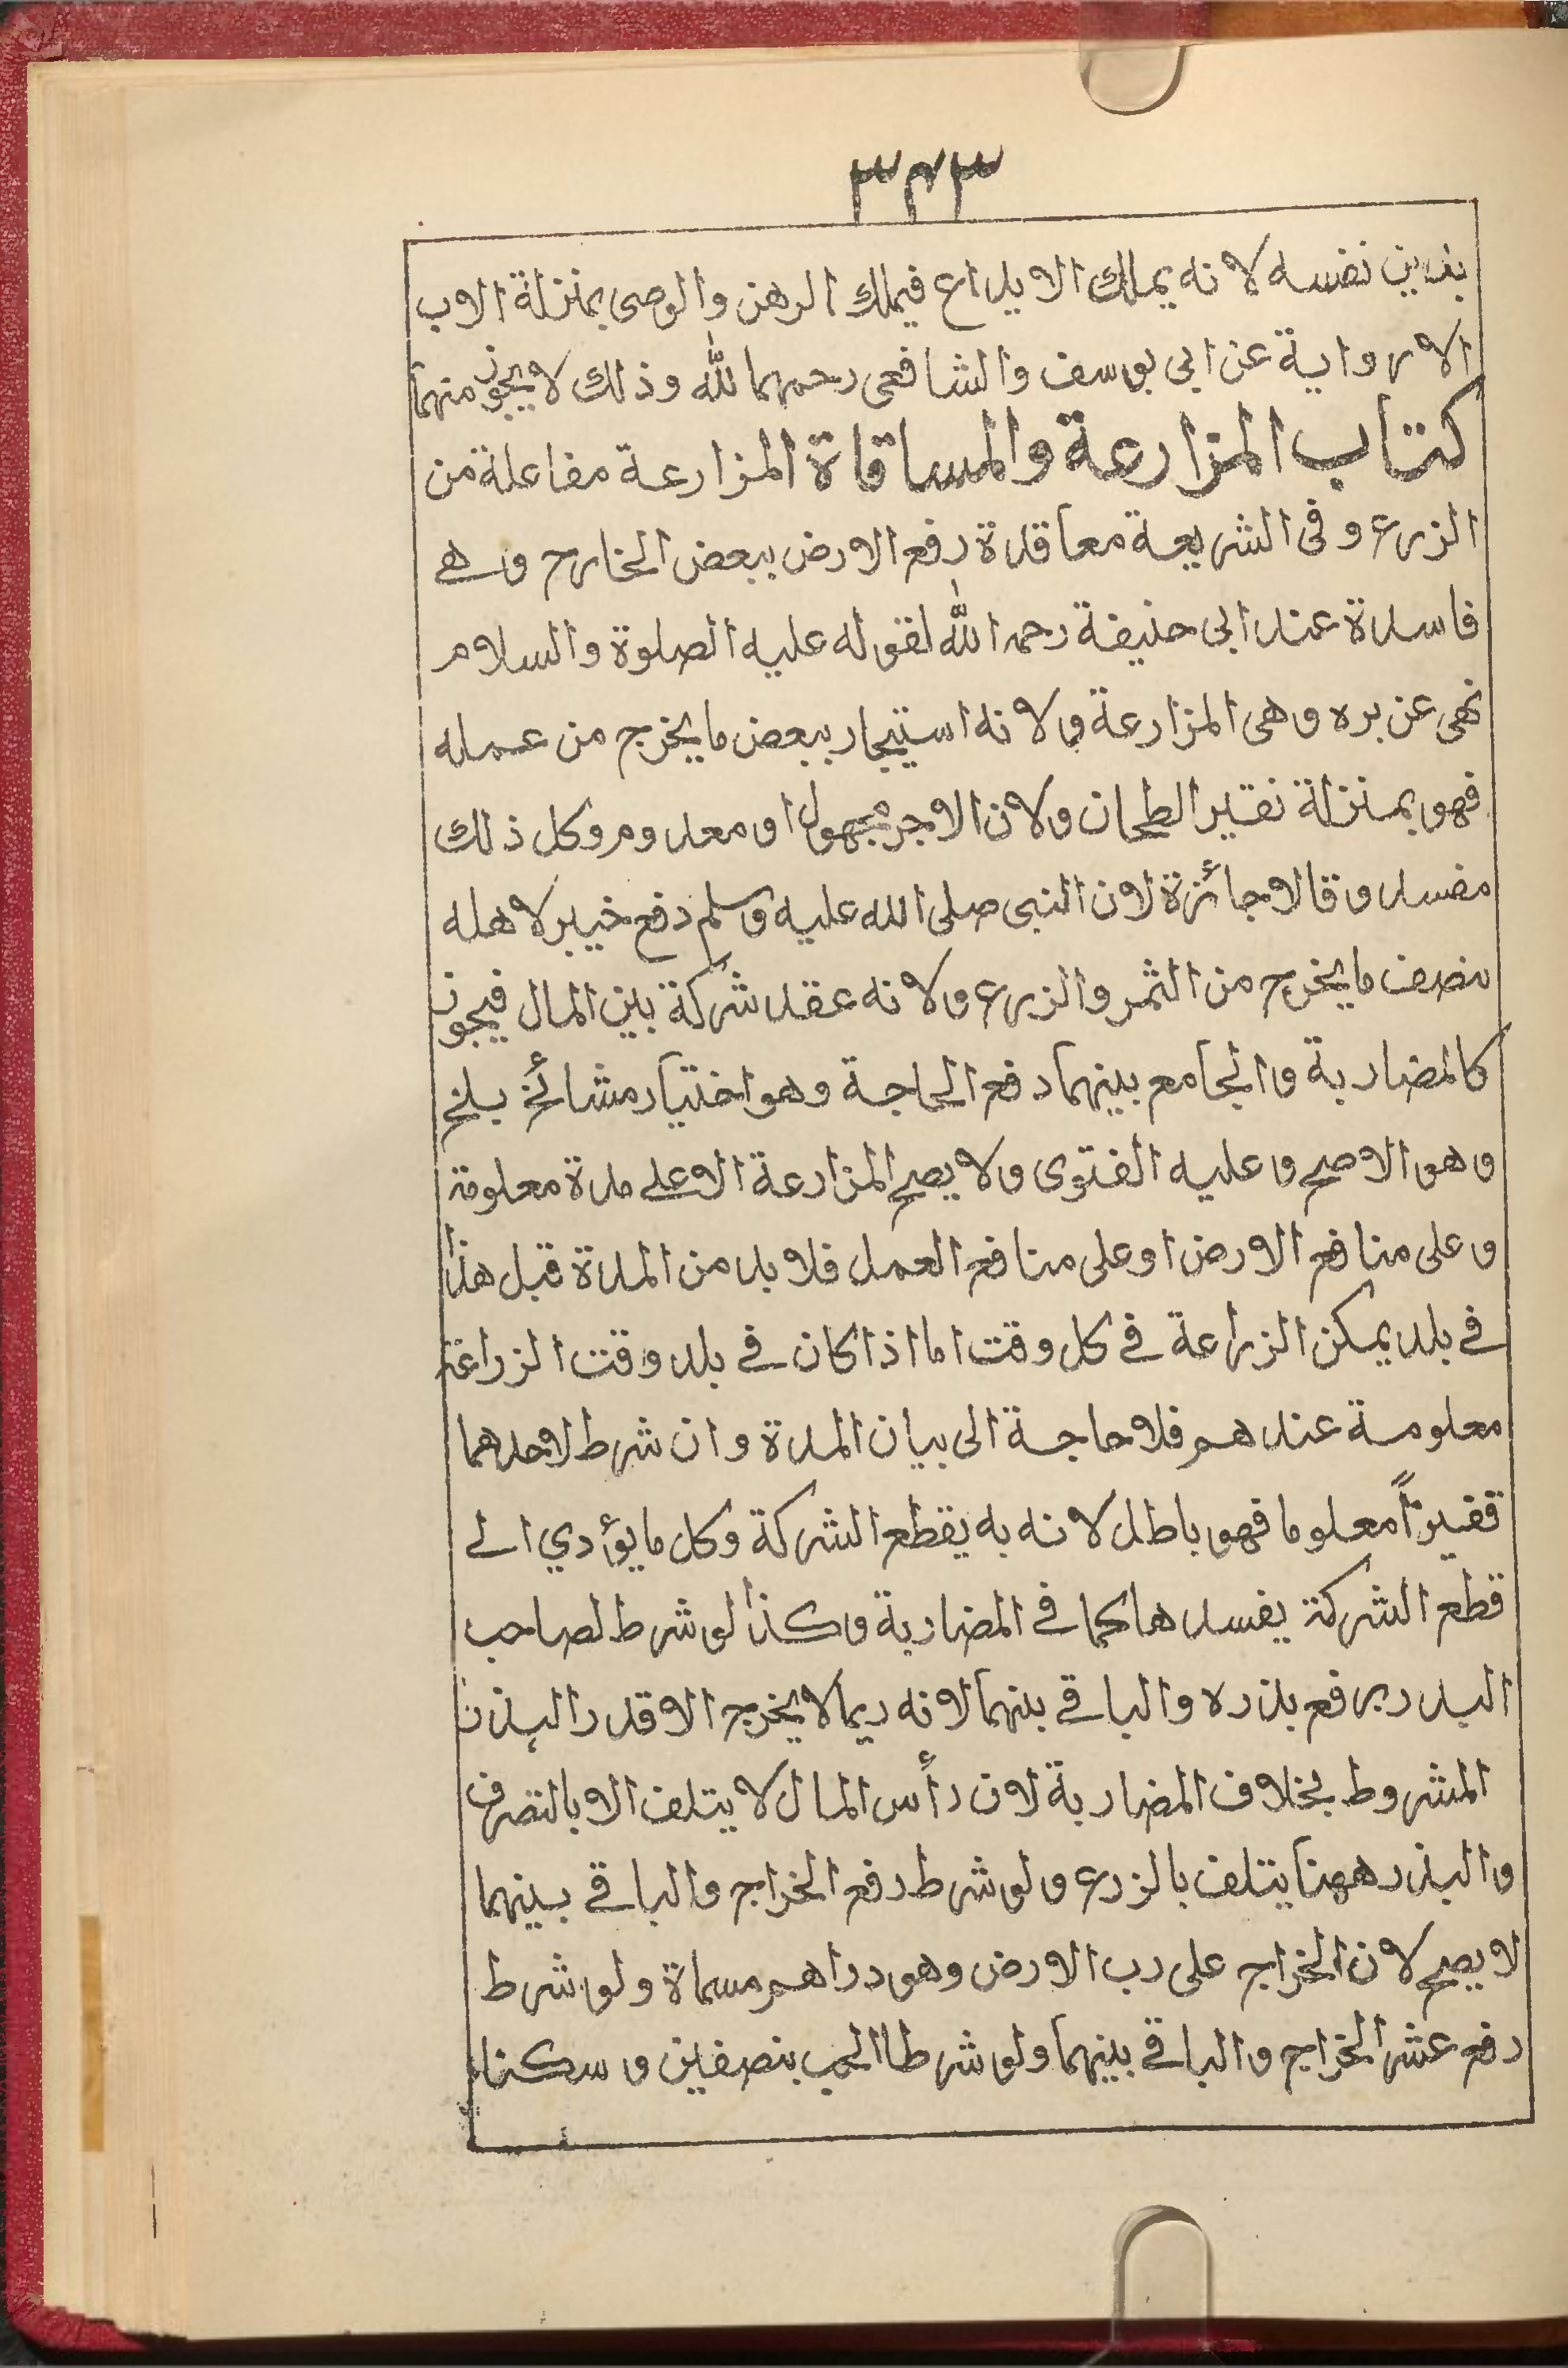 ٣٤٣
بدين نفسه لانه يملك الايداع فيملك الرهن والوصى بمنزلة الاب
الا رواية عن ابى يوسف والشافعى رحمهما لله وذلك لا يجوز منهما
كتاب المزارعة والمساقاة المزارعة مفاعلة من
الزرع وفى الشريعة معاقدة دفع الارض ببعض الخارج وهے
فاسدة عند ابى حنيفة رحمه الله لقوله عليه الصلوة والسلام
نهى عن بره وهى المزارعة ولانه استيجار ببعض ما يخرج من عمله
فهو بمنزلة نقيز الطحان ولان الاجر مجهول او معدوم وكل ذلك
مفسد وقالا جائزة لان النبى صلى الله عليه وسلم دفع خيبر لاهله
بنصف ما يخرج من الثمر والزرع ولانه عقد شركة بين المال فيجوز
كالمضاربة والجامع بينهما دفع الحاجة وهو اختيار مشائخ بلخ
وهو الاصح وعليه الفتوى ولا يصح المزارعة الا علے مدة معلومة
وعلى منافع الارض او على منافع العمل فلا بد من المدة قبل هذا
فے بلد يمكن الزراعة فے كل وقت اما اذا كان فے بلد وقت الزراعة
معلومة عندهم فلا حاجة الى بيان المدة وان شرط لاحدهما
قفيزاً معلوما فهو باطل لانه به يقطع الشركة وكل ما يؤدي الے
قطع الشركة يفسدها كما فے المضاربة وكذا لو شرط لصاحب
البدر رفع بذره والباقے بينهما لانه ربما لا يخرج الا قدر البذر
المشروط بخلاف المضاربة لان رأس المال لا يتلف الا بالتصرف
والبذر ههنا يتلف بالزرع ولو شرط دفع الخراج والباقے بينهما
لا يصح لان الخراج على رب الارض وهو دراهم مسماة ولو شرط
دفع عشر الخراج والباقے بينهما ولو شرطا الحب بنصفين وسكتا